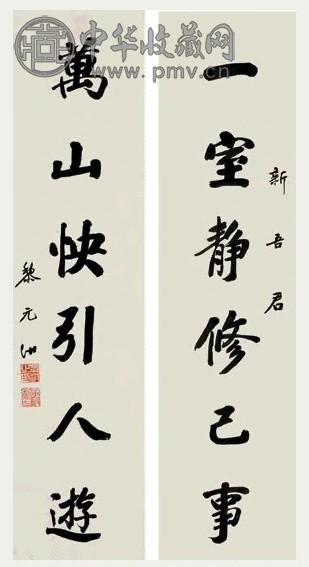 中华收藏网
www.pmv.cn
新吾君
一室静修己事
萬山快引人遊
黎元洪